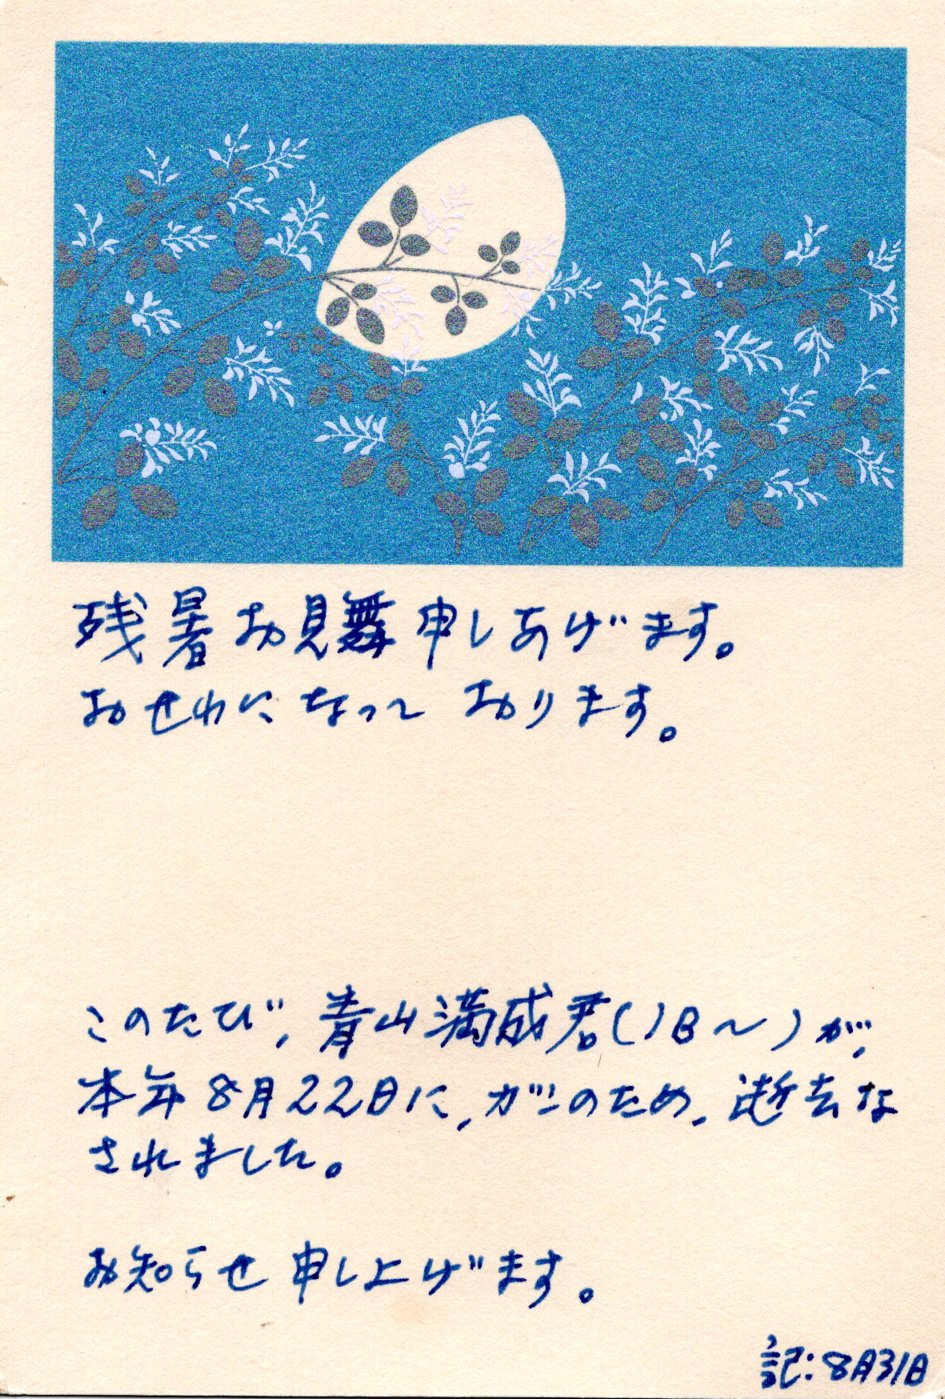 残暑お見舞申しあげます。
おせわになっております。
このたび、青山満成君(1B〜)が、
本年8月22日に、ガンのため、逝去な
されました。
お知らせ申し上げます。
記:8月31日